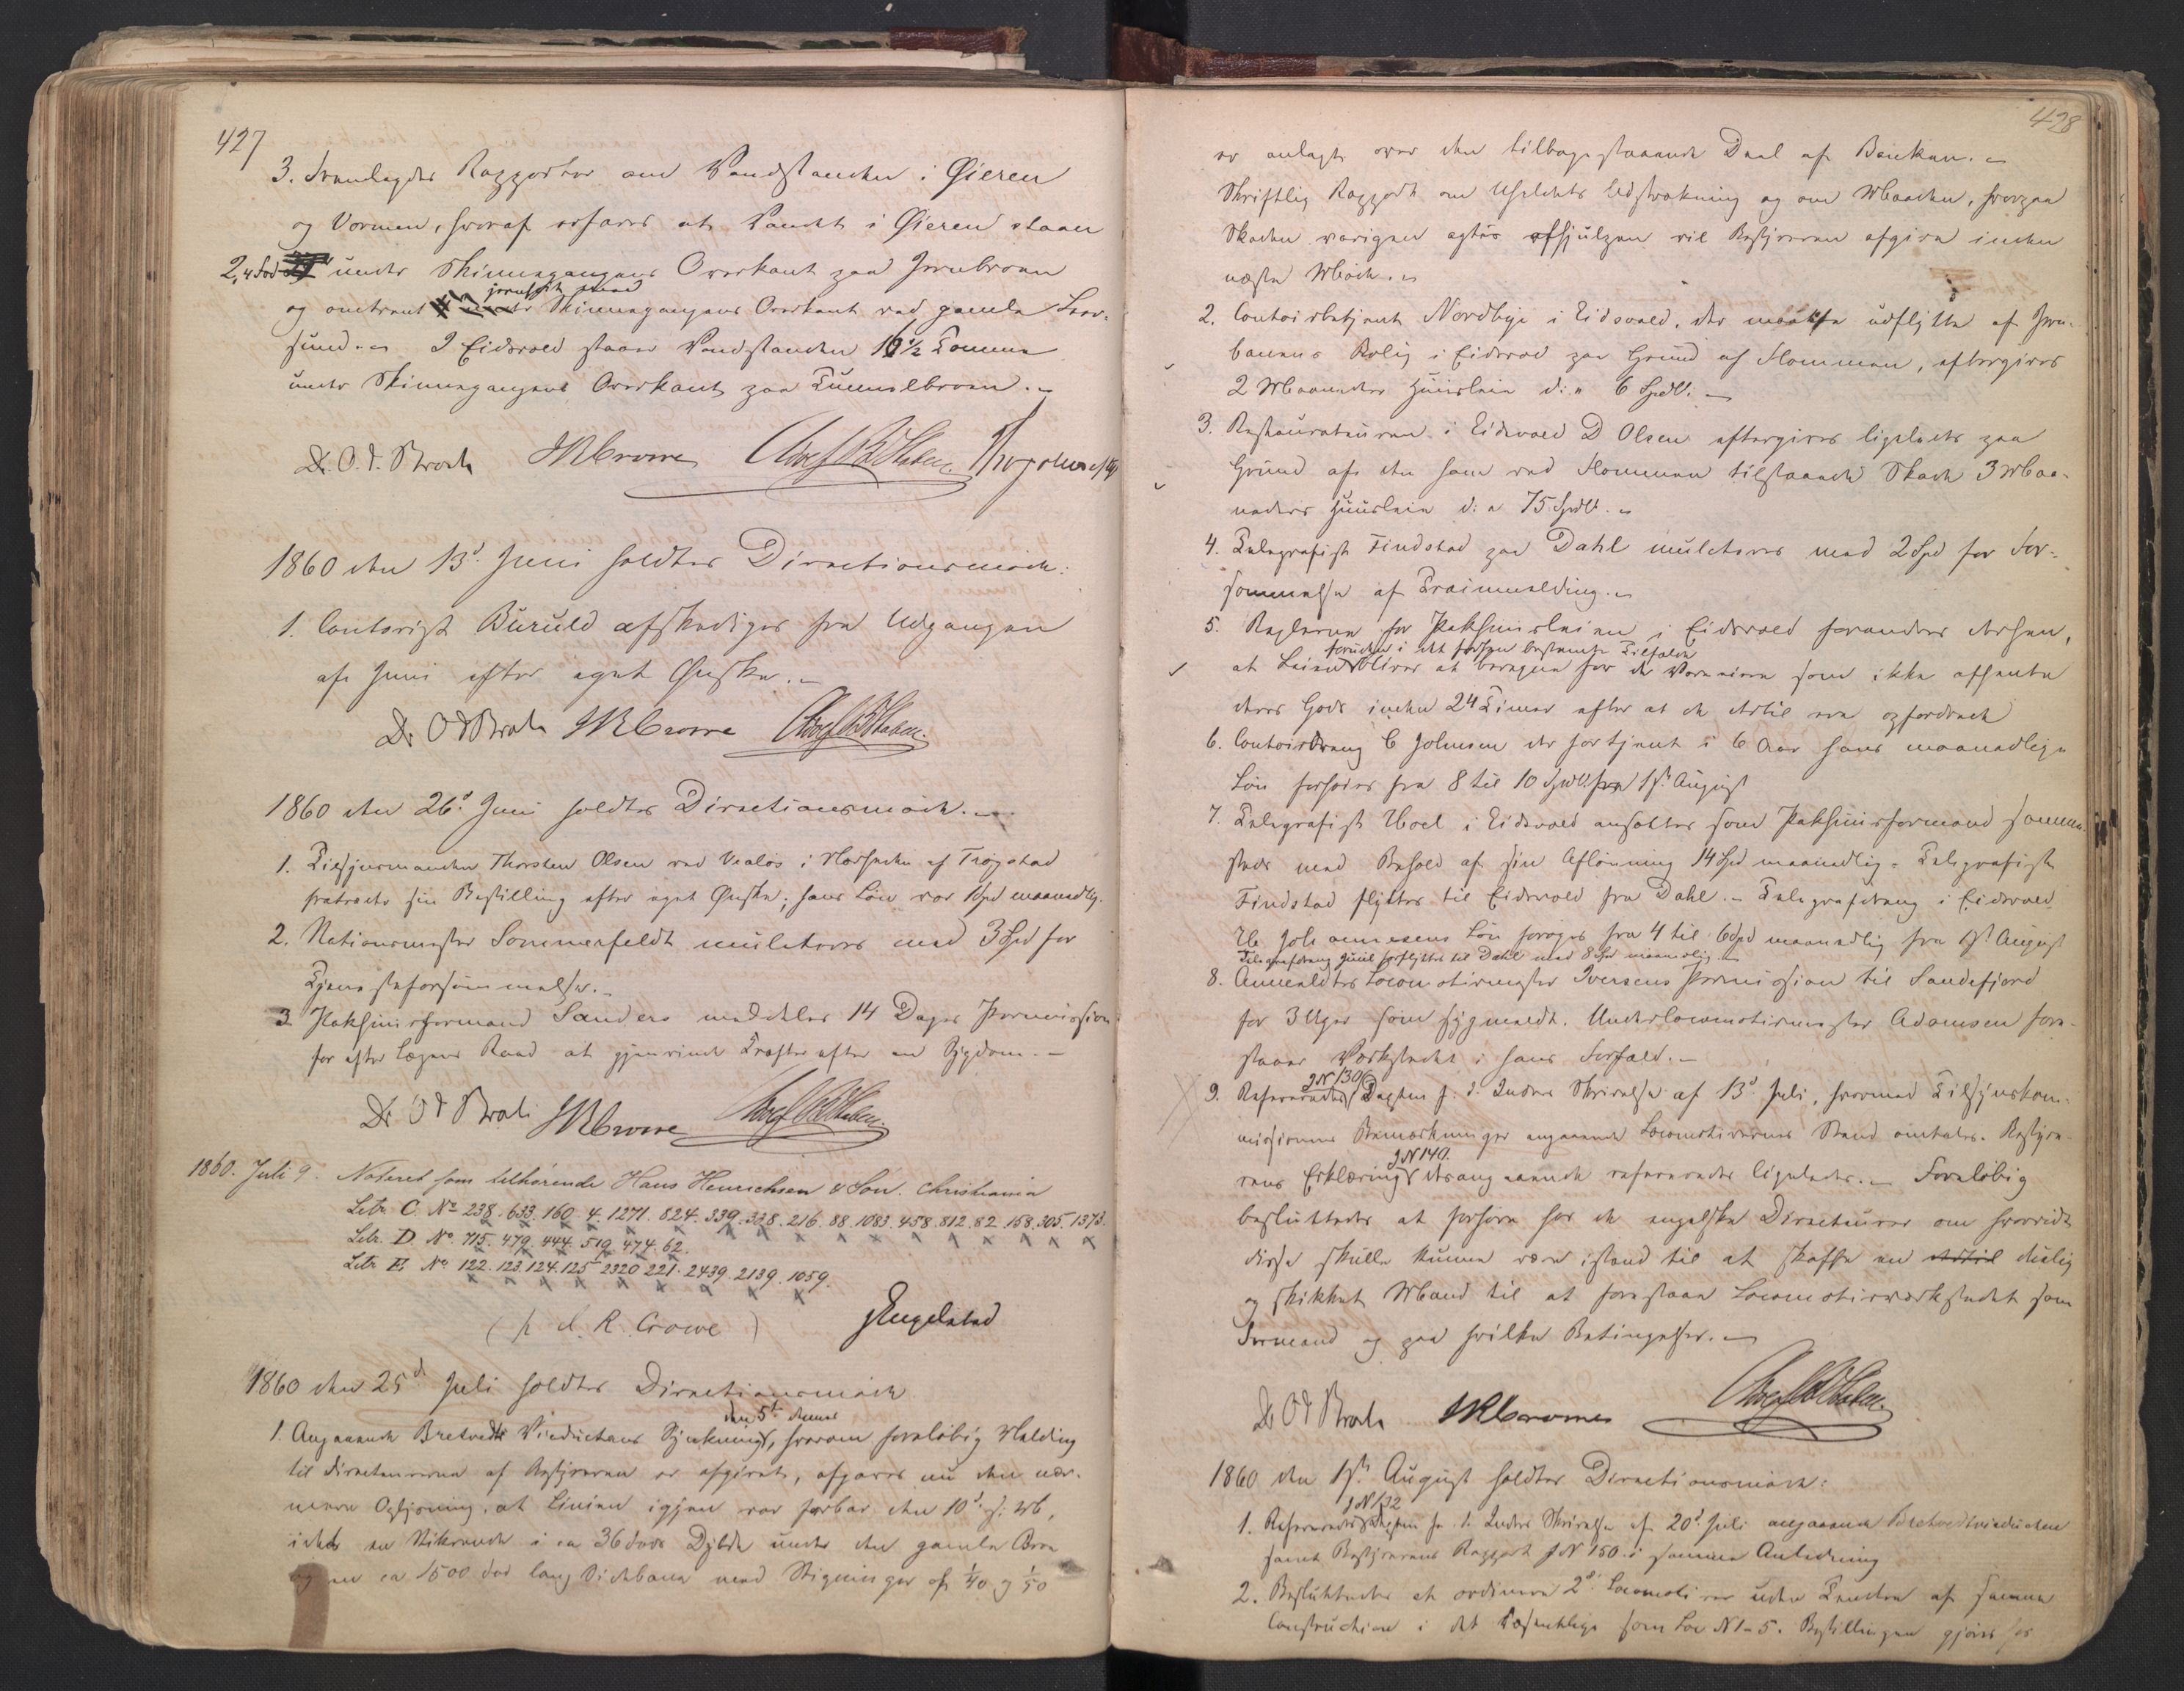 427
3. Fremlagdes Rapporter om Vandstanden i Øieren
og Vormen, hvoraf erfares at Vandet i Øieren staaer
2,4 Fod under Skinnegangens Overkant paa Jernbroen
og omtrent jevnhøit med Skinnegangens Overkant ved gamle Leer-
sund. I Eidsvold staaer Vandstanden 16 1/2 Tomme
under Skinnegangens Overkant paa Tunnelbroen.
Dr. O. J. Broch JRCrowe
1860 den 13de Juni holdtes Directionsmöde:
1. Contorist Buruld afskediges fra Udgangen
af Juni efter eget Ønske.
Dr O J Broch JRCrowe
1860 den 26de Juni holdtes Directionsmöde.
1. Tilsynsmanden Thorsten Olsen ved Vealøs i Nærheden af Trøgstad
fratraadte sin Bestilling efter eget Ønske; hans Løn var 1 Spd maanedlig.
2. Stationsmester Sommerfeldt mulcteres med 3 Spd for
Tjenesteforsømmelse.
3. Pakhuusformand Sanders meddeles 14 Dages Permission
for efter Lægens Raad at gjenvinde Kræfter efter en Sygdom.
Dr O J Broch JRCrowe
1860. Juli 9. Noteret som tilhørende Hans Henrichsen & Søn. Christiania
Litr. C. No 238. 633. 160. 4. 1271. 824. 339. 338. 216. 88. 1083. 458. 812. 82. 158. 305. 1373.
Litr. D. No. 715. 479. 444. 519. 474. 62.
Litr E. No 122. 123. 124. 125 2320 221. 2439. 2139. 1059.
(p. J. R. Crowe) Engelstad
1860 den 25de Juli holdtes Directionsmöde
1. Angaaende Bretvedt Viaductens Synkning den 5te dennes, hvorom foreløbig Melding
til Directeurerne af Bestyreren er afgivet, afgaves nu den nær-
mere Oplysning, at Linien igjen var farbar den 10de s. M,
idet en Stikrende i ca 36 Fods Dybde under den gamle Bro
og en ca 1500 Fod lang Sidebane med Stigninger af 1/40 og 1/50
428
er anlagt over den tilbagestaaende Deel af Banken.
Skriftlig Rapport om Uheldets Udstrækning og om Maaden, hvorpaa
Skaden agtes afhjulpen vil Bestyreren afgive inden
næste Møde.
2. Contoirbetjent Nordbye i Eidsvold, der maatte udflytte af Jern-
banens Bolig i Eidsvold paa Grund af Flommen, eftergives
2 Maaneders Huusleie d: e 6 Spdl:
3. Restaurateuren i Eidsvold D Olsen eftergives ligeledes paa
Grund af den ham ved Flommen tilstaaende Skade 3 Maa-
neders Huusleie d: e 75 Spdl.
4. Telegrafist Findstad paa Dahl mulcteres med 2 Spd for For-
sømmelse af Trainmelding.
5. Reglerne for Pakhuusleien i Eidsvold forandres derhen,
at Leien foruden i det forhen bestemte Tilfælde bliver at beregne for de Vareeiere som ikke afhente
deres Gods inden 24 Timer efter at de dertil ere opfordrede
6. Contoirdreng C Johnsen der har tjent i 6 Aar hans maanedlige
Løn forhøies fra 8 til 10 Spdl. fra 1ste August
7. Telegrafist Hoel i Eidsvold ansættes som Pakhuusformand sammen-
steds med Behold af sin Aflønning 14 Spd maanedlig. Telegrafist
Findstad flyttes til Eidsvold fra Dahl. Telegrafdreng i Eidsvold
H. Johannesens Løn forøges fra 4 til 6 Spd maanedlig fra 1ste August
Telegrafdreng Juul forflyttes til Dahl med 8 Spd maanedlig.
8. Anmeldtes Locomotivmester Iversens Permission til Sandefjord
for 3 Uger som sygmeldt. Underlocomotivmester Adamsen fore-
staaer Værkstedet i hans Forfald.
9. Refereredes J N 130 Depten f. d. Indres Skrivelse af 13de Juli, hvormed Tilsynskom-
missionens Bemærkninger angaaende Locomotivernes Stand omtales. Bestyre-
rens Erklæring J N 149. desangaaende refereredes ligeledes. Foreløbig
besluttedes at forhøre hos de engelske Directeurer om hvorvidt
disse skulle kunne være istand til at skaffe en duelig
og skikket Mand til at forestaae Locomotivværkstedet som
Formand og paa hvilke Betingelser.
Dr O J Broch JRCrowe
1860 den 1ste August holdtes Directionsmøde:
1. Refereredes J N 132 Depten f. d. Indres Skrivelse af 20de Juli angaaende Bretvedtviaducten
samt Bestyrerens Rapport J N 150 i samme Anledning
2. Besluttedes at ordinere 2de Locomotiver uden Tender af samme
Construction i det Væsentlige som Loc N 1-5. Bestillingen gjøres hos